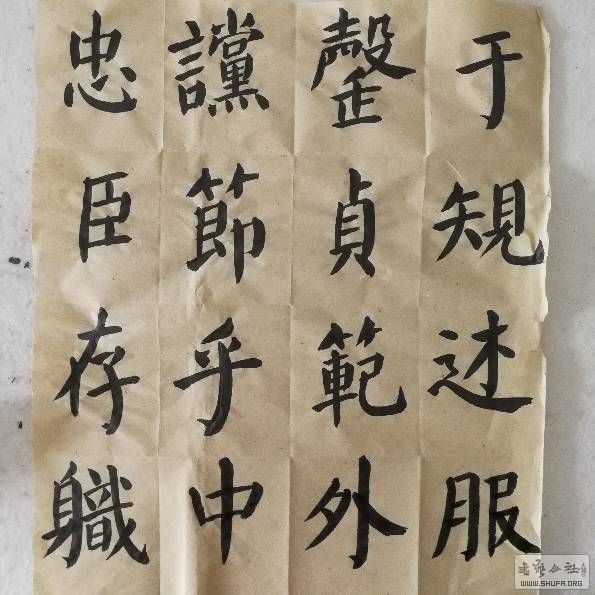 忠讜罄于
臣節貞䂓
存乎範述
軄中外服
書法公社
WWW.SHUFA.ORG